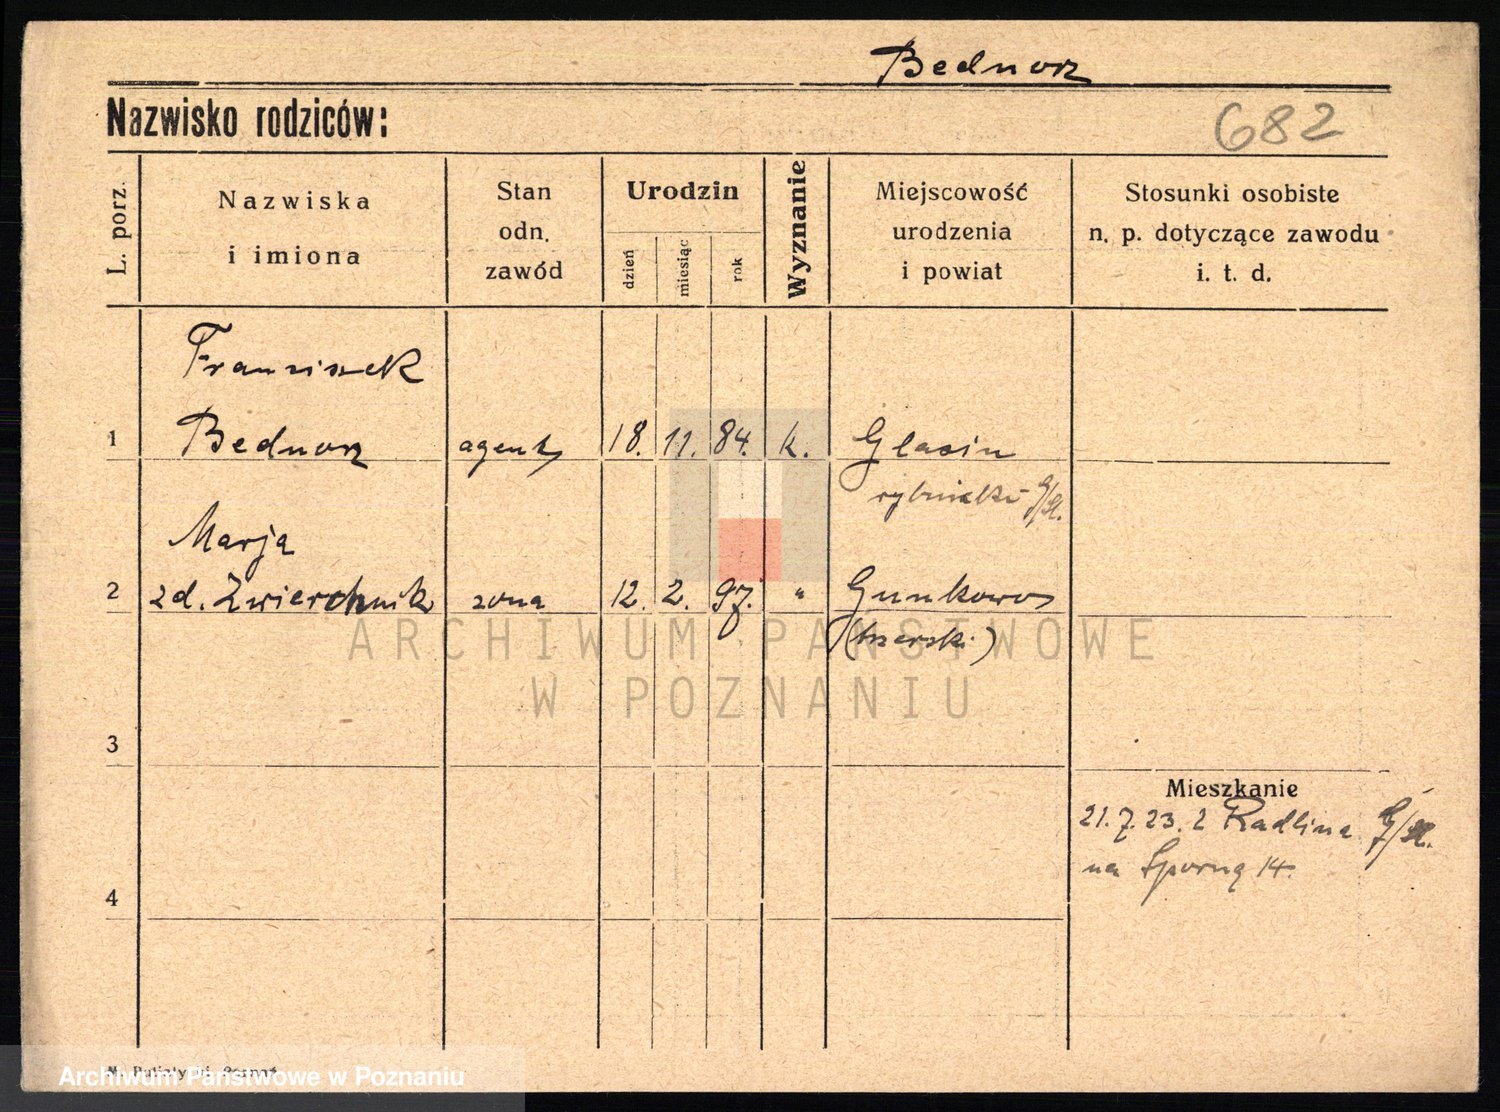 Bednorz
Nazwisko rodziców:
682
L. porz.
Nazwiska
i imiona
Stan
odn.
zawód
Urodzin
dzień
miesiąc
rok
Wyznanie
Miejscowość
urodzenia
i powiat
Stosunki osobiste
n. p. dotyczące zawodu
i. t. d.
Franciszek
1 Bednorz agent 18. 11. 84. k. Glasin
rybnicki G/Śl.
Marja
2 zd. Zwierchnik żona 12. 2. 97. " Gunkowos
3
Mieszkanie
21.7.23. z Radlina G/Śl.
na Sporną 14.
4
ARCHIWUM PAŃSTWOWE
W POZNANIU
Archiwum Państwowe w Poznaniu